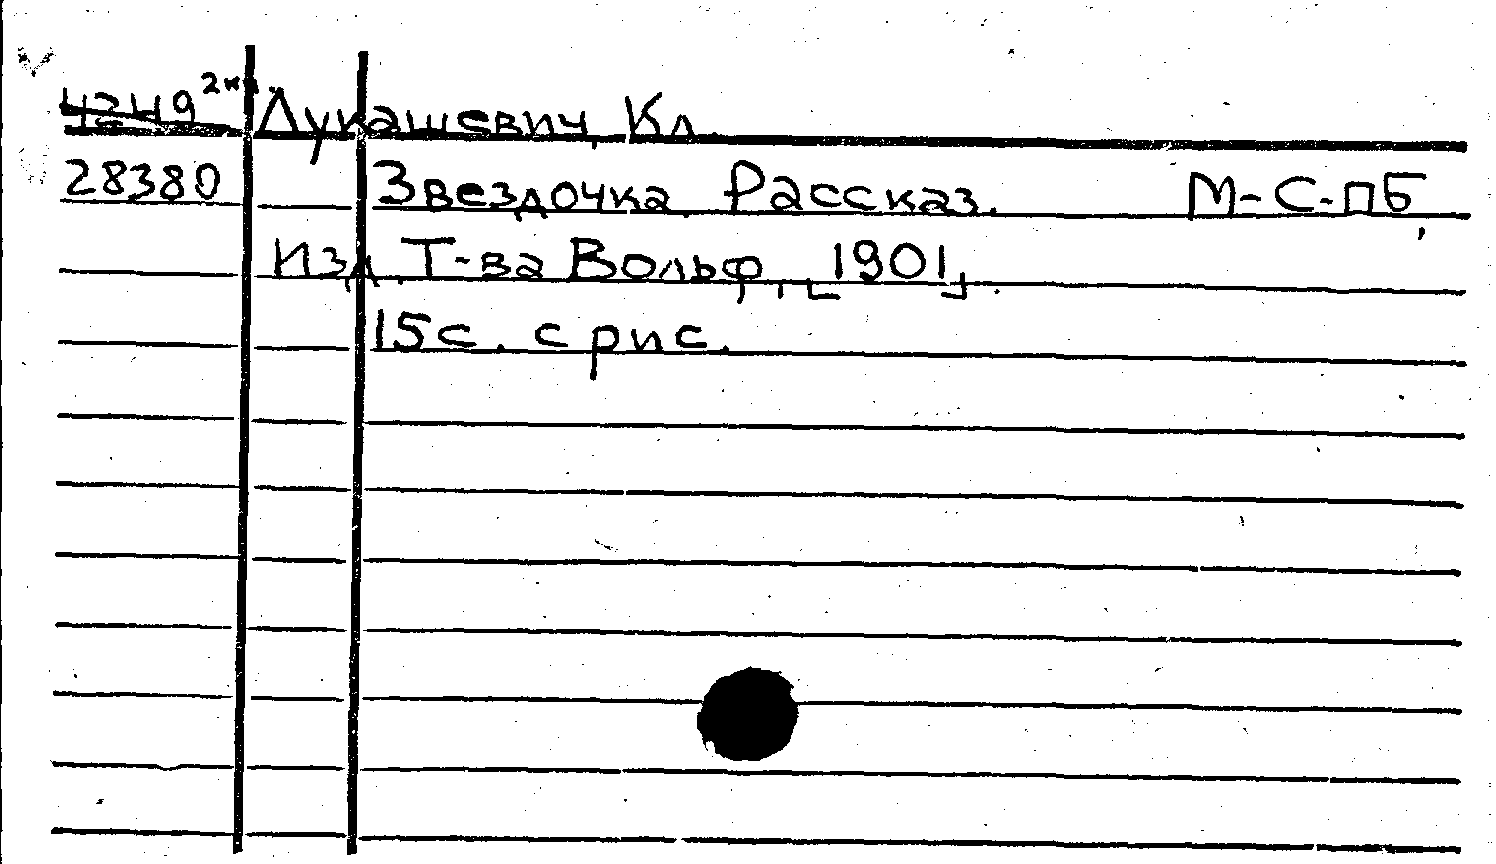 4249 2 кн. Лукашевич, Кл.
28380 Звездочка. Рассказ. М-С-ПБ,
Изд. Т-ва Вольф, [1901].
15 с. с рис.